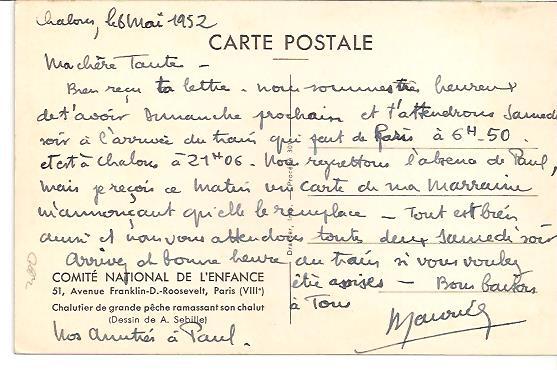 Chalons, le 6 Mai 1952
CARTE POSTALE
Ma chère Tante -
Bien reçu ta lettre - nous sommes très heureux
de t'avoir Dimanche prochain et t'attendrons Samedi
soir à l'arrivée du train qui part de Paris à 6H-50
et est à Chalons à 21H06. Nous regrettons l'absence de Paul,
mais je reçois ce Matin un carte de ma Marraine
m'annonçant qu'elle le remplace - Tout est bien
ainsi et nous vous attendons toutes deux Samedi soir
Arrivez de bonne heure au train si vous voulez
COMITÉ NATIONAL DE L'ENFANCE
être assises - Bons baisers
51, Avenue Franklin-D.-Roosevelt, Paris (VIIIe)
à Tous
Chalutier de grande pêche ramassant son chalut
(Dessin de A. Sebille)
Nos Amitiés à Paul.